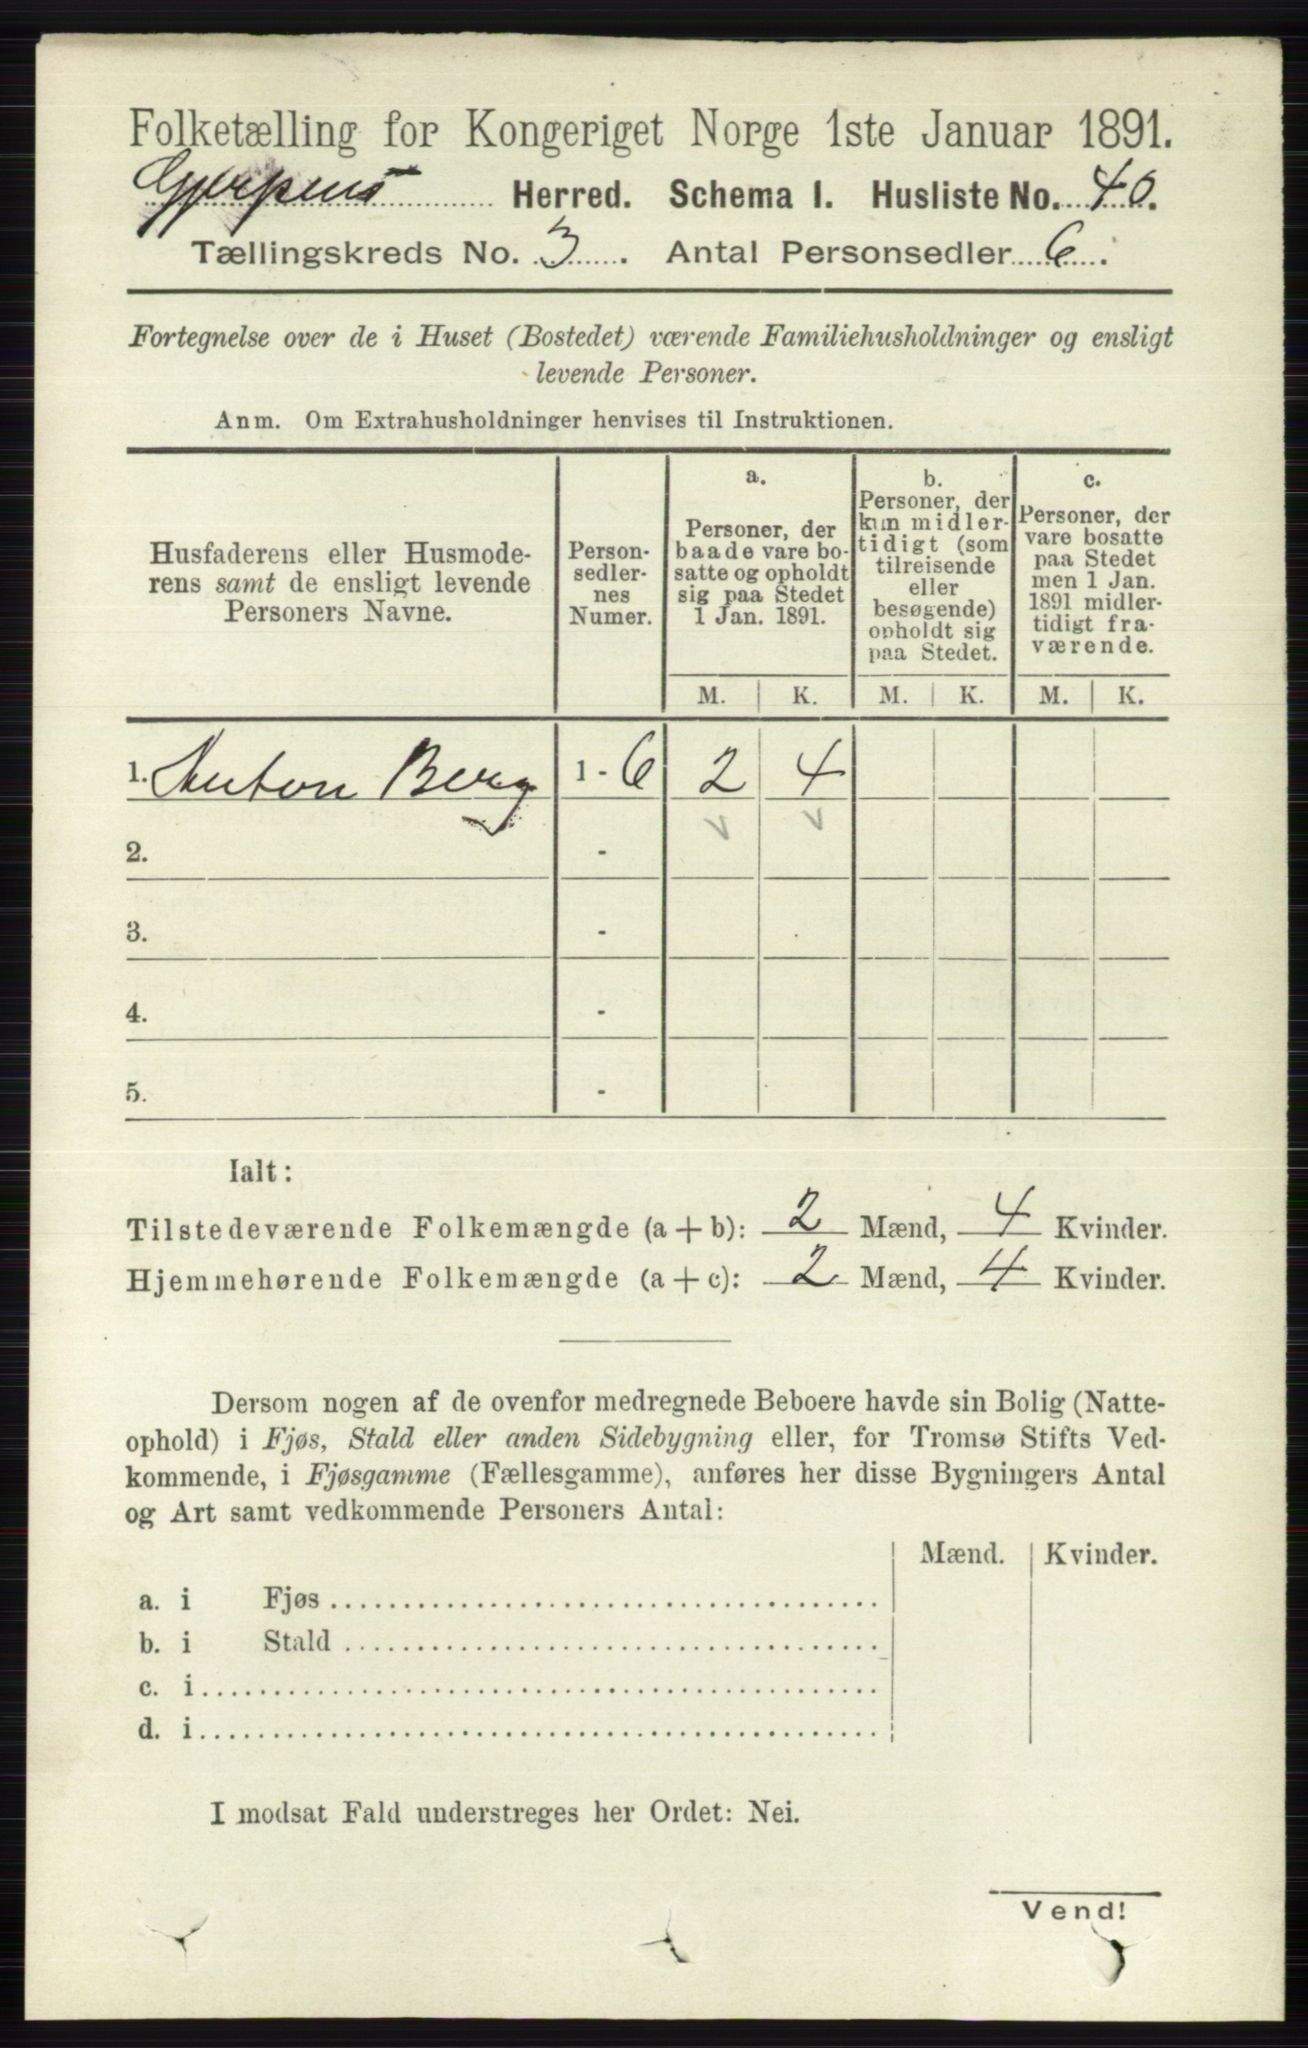 Folketælling for Kongeriget Norge 1ste Januar 1891.
Gjerpens Herred. Schema I. Husliste No. 40.
Tællingskreds No. 3. Antal Personsedler 6.
Fortegnelse over de i Huset (Bostedet) værende Familiehusholdninger og ensligt
levende Personer.
Anm. Om Extrahusholdninger henvises til Instruktionen.
Husfaderens eller Husmode-
rens samt de ensligt levende
Personers Navne.
Person-
sedler-
nes
Numer.
a.
Personer, der
baade vare bo-
satte og opholdt
sig paa Stedet
1 Jan. 1891.
b.
Personer, der
kun midler-
tidigt (som
tilreisende
eller
besøgende)
opholdt sig
paa Stedet.
c.
Personer, der
vare bosatte
paa Stedet
men 1 Jan.
1891 midler-
tidigt fra-
værende.
M. K. M. K. M. K.
1. Anton Berg 1 - 6 2 4
2. -
3. -
4. -
5. -
Ialt:
Tilstedeværende Folkemængde (a + b): 2 Mænd, 4 Kvinder.
Hjemmehørende Folkemængde (a + c): 2 Mænd, 4 Kvinder.
Dersom nogen af de ovenfor medregnede Beboere havde sin Bolig (Natte-
ophold) i Fjøs, Stald eller anden Sidebygning eller, for Tromsø Stifts Ved-
kommende, i Fjøsgamme (Fællesgamme), anføres her disse Bygningers Antal
og Art samt vedkommende Personers Antal:
Mænd. Kvinder.
a. i Fjøs
b. i Stald
c. i
d. i
I modsat Fald understreges her Ordet: Nei.
Vend!